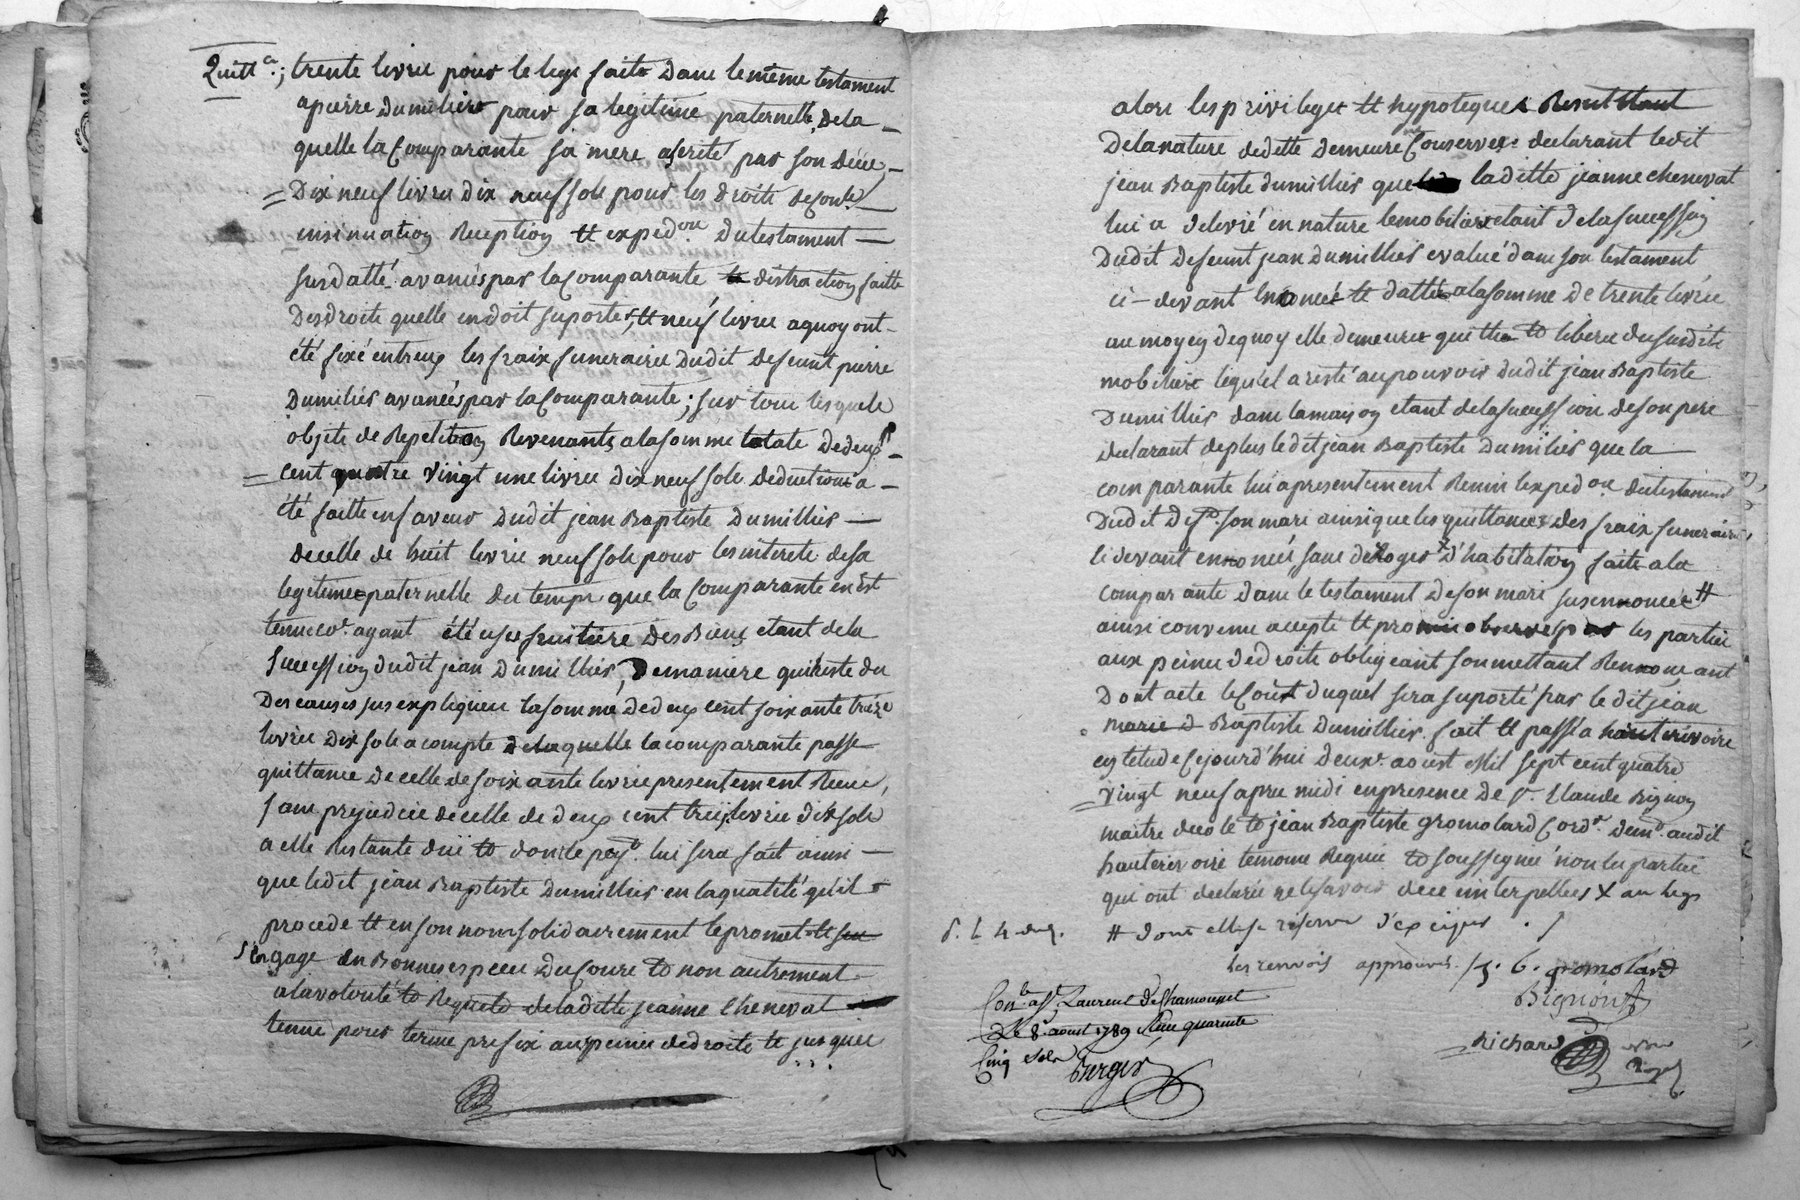 Quitt.ce; trente livres pour le legs faite dans le même testament
a pierre Dumilier pour sa legitime paternelle, dela
quelle la Comparante sa mere a herité par son décès,
Dix neuf livres dix neuf sols pour les droits de Conle.
insinuation Reception et expedon. du testament
susdatté avancés par la Comparante distraction faitte
Des droits quelle en doit suporter, et neuf livres a quoy ont
été fixé entreux les fraix funeraires dudit defeunt pierre
Dumiliés avancés par la Comparante; sur tous lesquels
objets de Repetition Revenants a la somme totale de deux
cent quatre vingt une livres dix neuf sols deduction a
été faitte en faveur dudit jean Baptiste Dumillies
de celle de huit livres neuf sols pour les interets de sa
legitime paternelle du temps que la Comparante en est
tenue ayant été usufruitiere des Biens etant de la
succession dudit jean Dumillies, De maniere qui reste du
Des causes sus expliquées la somme de deux cent soixante treize
livres dix sols a compte de laquelle la comparante passe
quittance de celle de soixante livres presentement Recue,
sans prejudice de celle de deux cent treize livres dix sols
a elle Restante duë dont le paÿt. lui sera fait ainsi
que ledit jean Baptiste Dumillies en la qualité qu'il
procede et en son nom solidairement le promet et
s'engage en Bonnes especes du Cours et non autrement
a la volonté et Requete de laditte jeanne Chenevat
tenue pour terme prefix aux peines de droits et jusques
alors les privileges et hypoteques Resultant
De la nature de dette demeure Conservée. declarant ledit
jean Baptiste dumillies que laditte jeanne chenevat
lui a delivré en nature le mobilier etant de la succession
Dudit defeunt jean dumillies evalué dans son testament
ci-devant ennoncé et datté a la somme de trente livres
au moyen de quoy elle demeure quitte et liberée du susdit
mobilier lequel a resté au pouvoir dudit jean Baptiste
Dumillies dans la maison etant de la succession de son pere
declarant de plus ledit jean Baptiste Dumilies que la
comparante lui a presentement Remis l'expedon. du testament
Dudit deft. son mari ainsi que les quittances des fraix funeraires
ci devant ennoncés sans deroger x d'habitation faite a la
comparante dans le testament de son mari susennoncée #
ainsi convenu accepté et promis observer par les parties
aux peines de droits obligeant soumettant Renonceant
Dont acte le Cout duquel sera suporté par le dit jean
marie d Baptiste Dumillies. fait et passé a hauterivoire
en etude cejourd'hui deux aoust Mil sept cent quatre
vingt neuf apres midi en presence de Sr. Claude Bignon
maitre decole et jean Baptiste gromolard Cordr. demt. audit
hauterivoire temoins Requis et soussignés non les parties
qui ont declarés ne le savoir de ce interpellées x au legs
# dont elle se reserve d'exiger
les renvois approuvés. J. B. gromolard
Bignon
Conle. a St. Laurent de Chamousset
Le 8e. aoust 1789 Reçu quarante
Cinq sols
Berger
Richard